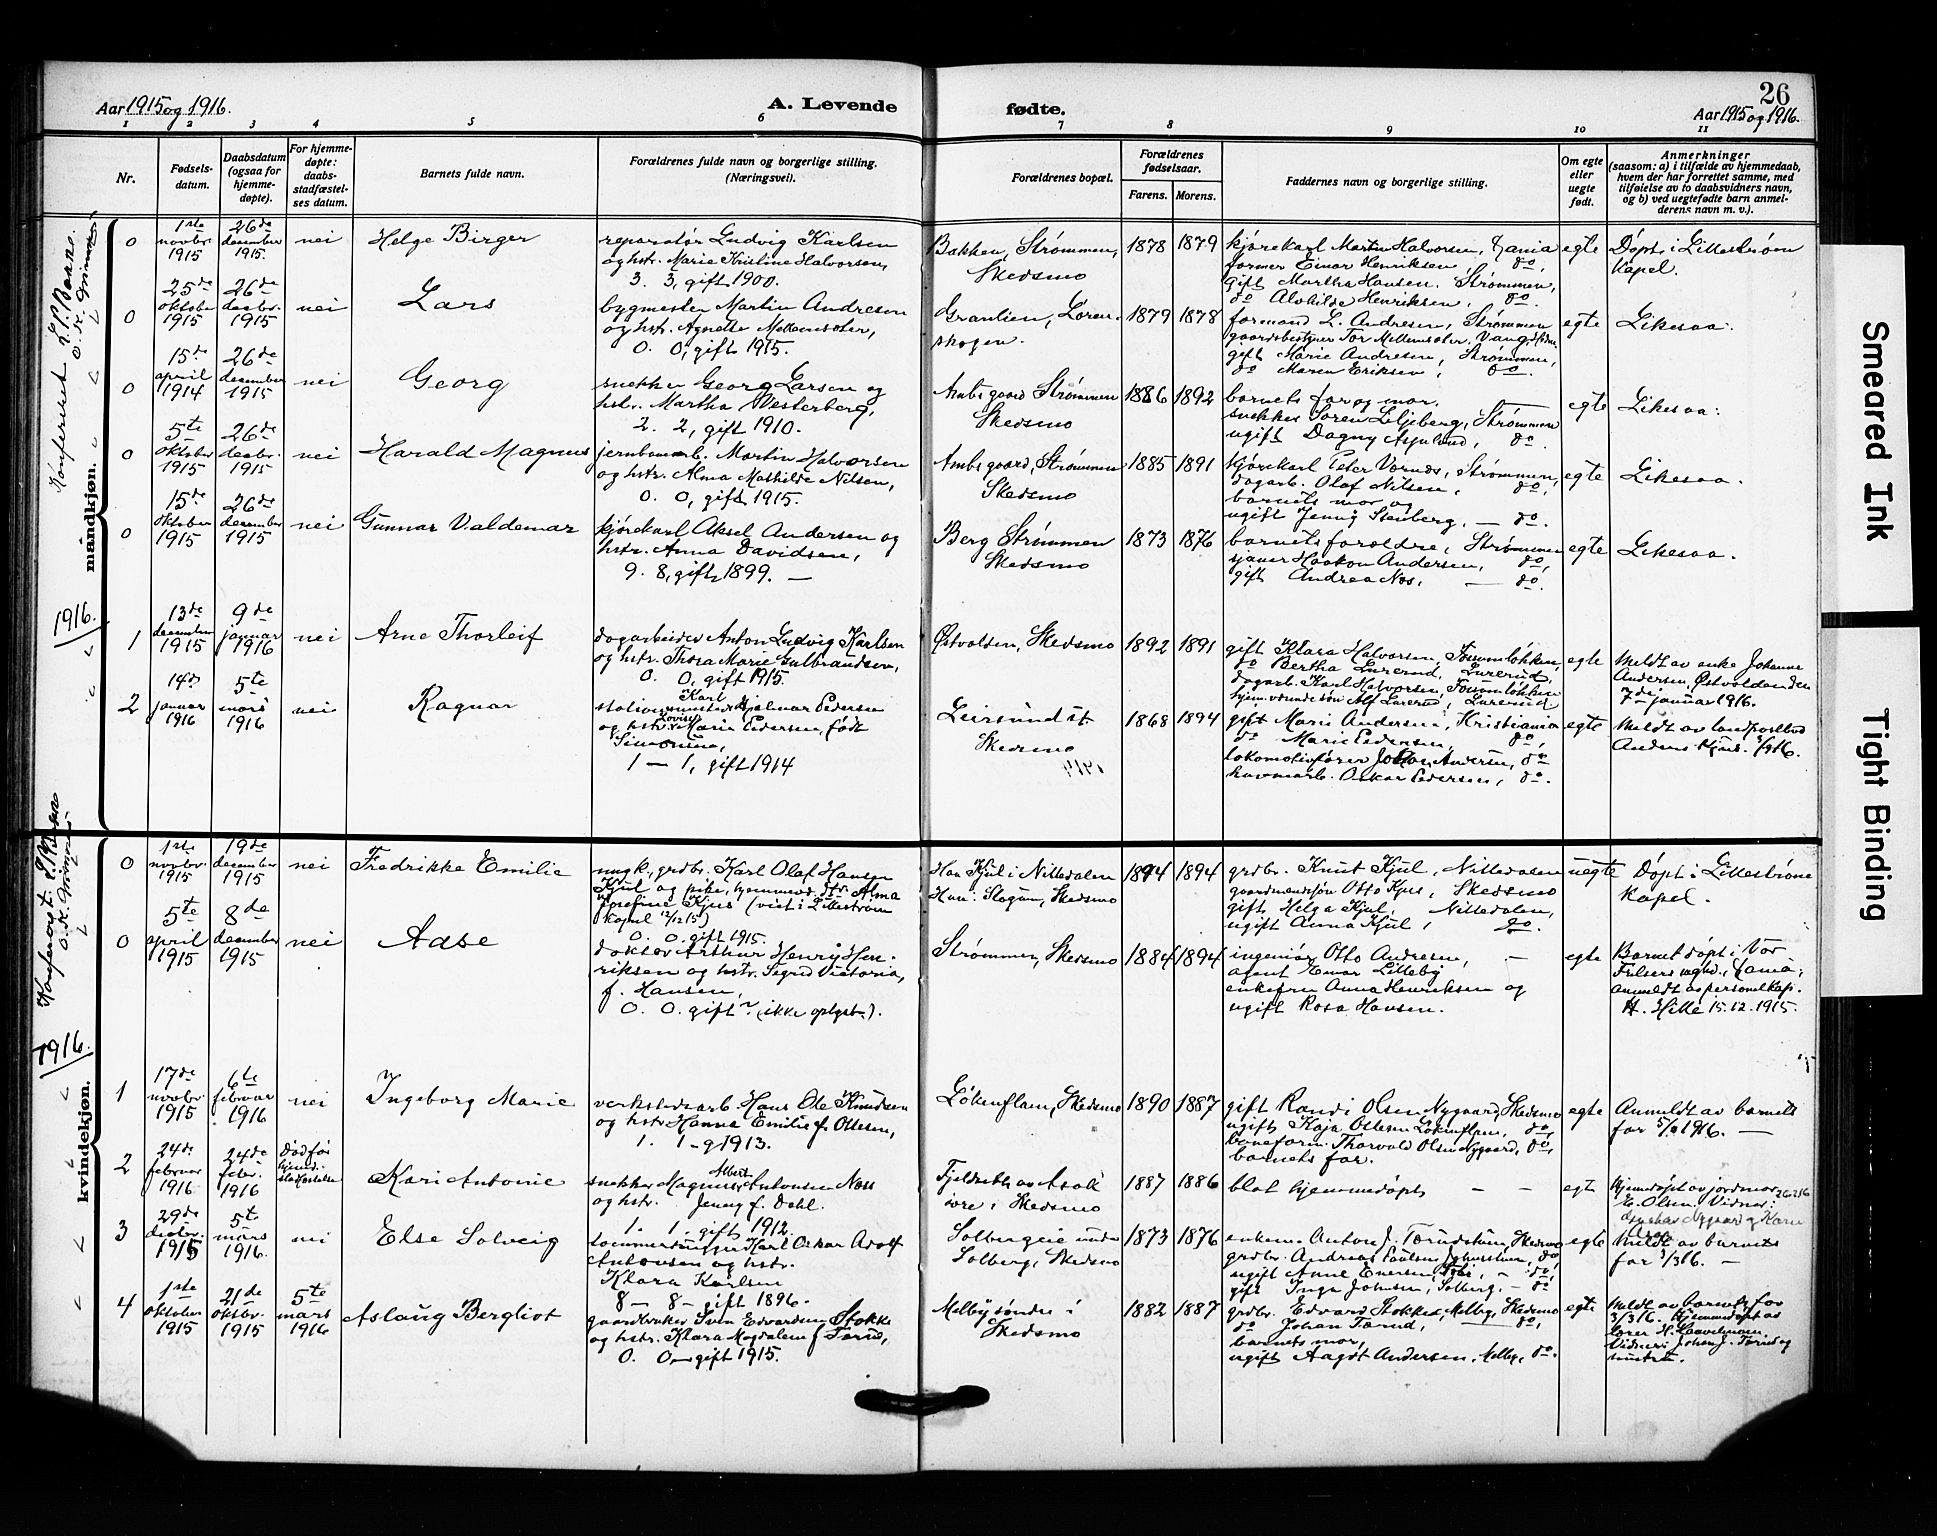 26
Aar 1915 og 1916.
A. Levende
fødte.
Aar 1915 og 1916.
1 2 3 4 5 6 7 8 9 10 11
Nr.
Fødsels-
datum.
Daabsdatum
(ogsaa for
hjemme-
døpte).
For hjemme-
døpte:
daabs-
stadfæstel-
ses datum.
Barnets fulde navn.
Forældrenes fulde navn og borgerlige stilling.
(Næringsvei).
Forældrenes bopæl.
Forældrenes
fødselsaar.
Farens. Morens.
Faddernes navn og borgerlige stilling.
Om egte
eller
uegte
født.
Anmerkninger
(saasom: a) i tilfælde av hjemmedaab,
hvem der har forrettet samme, med
tilføielse av to daabsvidners navn,
og b) ved uegtefødte barn anmel-
derens navn m. v.).
mandkjøn.
0
1ste
novbr.
1915
26de
desember
1915.
nei
Helge Birger
reparatør Ludvig Karlsen
og hstr. Marie Kristine Halvorsen,
3. 3, gift 1900.
Bakken, Strømmen,
Skedsmo
1878
1879
kjørekarl Martin Halvorsen,
former Einar Henriksen, do,
gift Martha Hansen, Strømmen,
do Alvhilde Henriksen, do.
egte
Døpt i Lillestrøm
Kapel.
0
25de
oktober
1915
26de
desbr.
1915
nei
Lars
bygmester Martin Andresen
og hstr. Agnethe
0. 0, gift 1915.
Granlien, Løren-
skogen.
1879
1878
formand L. Andresen, Strømmen
gift Marie Andresen, Strømmen,
do Maren Eriksen, do.
egte
Likesaa.
0
15de
april
1914
26de
desember
1915
nei
Georg
snekker Georg Larsen og
hstr. Martha Westerberg,
2. 2, gift 1910.
Strømmen
Skedsmo
1886
1892
barnets far og mor.
snekker Søren Liljeberg, Strømmen
ugift Dagny Asjulund, do.
egte
Likesaa.
0
5te
oktober
1915
26de
desbr.
1915
nei
Harald Magnus
jernbanearb. Martin Halvorsen
og hstr. Alma Mathilde Nilsen,
0. 0, gift 1915.
Strømmen
Skedsmo
1885
1891
kjørekarl Peter Strømmen,
dagarb. Olaf Nilsen, do,
barnets mor og
ugift Jenny Stenberg, — do.
egte
Likesaa.
0
15de
oktober
1915
26de
desember
1915
nei
Gunnar Valdemar
kjørekarl Aksel Andersen og
hstr. Anna Davidsen,
9. 8, gift 1899. —
Berg Strømmen
Skedsmo
1873
1876
barnets forældre, Strømmen
Haakon Andersen, do,
gift Andrea Næs, — do.
egte
Likesaa.
1916.
1
13de
desember
1915
9de
januar
1916
nei
Arne Thorleif
dagarbeider Anton Ludvig Karlsen
og hstr. Thora Marie Gulbrandsen,
0. 0, gift 1915.
Østvolden, Skedsmo
1892
1891
gift Klara Halvorsen, Fossumløkken,
do Bertha Lurerud, Lurerud,
dagarb. Karl Halvorsen, Fossumløkken
hjemværende søn Alf Lurerud, Lurerud
egte
Meldt av enke Johanne
Andersen, Østvolden den
7de januar 1916.
2
14de
januar
1916
5te
mars
1916
nei
Ragnar
stationsmester Karl Hjalmar Pedersen
og hstr. Lovise Marie Pedersen, født
Simonsen,
1 — 1, gift 1914
Leirsund st
Skedsmo
1868
1894
gift Marie Andersen, Kristiania
do Marie Pedersen, do,
lokomotivfører Johan Andersen, do
havnearb. Oskar Pedersen, do.
egte
Meldt av landpostbud
Anders
kvindekjøn.
0
1ste
novbr.
1915
19de
desember
1915
nei
Fredrikke Emilie
ungk., grdbr. Karl Olaf Hansen
Kjul og pike, hjemmev. dtr. Alma
Josefine Kjus (viet i Lillestrøm
Kapel 12/12 15)
0. 0. gift 1915.
Han Kjul i Nittedalen
Hun: Skedsmo
1894
1894
grdbr. Knut Kjul, Nittedalen
gaardmandssøn Otto Kjus, Skedsmo
gift Helga Kjul, Nittedalen,
ugift Anna Kjul, do.
uegte
Døpt i Lillestrøm
Kapel.
0
5te
april
1915
8de
desember
1915
nei
Adse
doktor Arthur Henry Hen-
riksen og hstr. Sigrid Victoria,
f. Hansen,
0. 0. gift ? (ikke oplyst.).
Strømmen, Skedsmo
1884
1894
ingeniør Otto Andresen, —
agent Einar Lilleby
enkefru Anna Henriksen og
ugift Rosa Hansen.
egte
Barnet døpt i Vor
Frelsers
anmeldt av personelkap.
H. Hille 15.12.1915.
1916.
1
17de
novbr.
1915
6te
februar
1916
nei
Ingeborg Marie
verkstedsarb. Hans Ole Knudsen
og hstr. Hanna Emilie f. Ottesen,
1. 1 - g 1913.
Løkenflaen, Skedsmo
1890
1887
gift Randi Olsen Nygaard, Skedsmo
ugift Kaja Ottesen Løkenflaen, do,
Thorvald Olsen Nygaard, do,
barnets far.
egte
Anmeldt av barnets
far 1916. —
2
24de
februar
1916
24de
febr.
1916
Død før
stadfæstelse
Kari Antonie
snekker Magnus Albert Antonsen Næss
og hstr. Jenny f. Dahl.
1. 1 - gift 1912.
øvre i Skedsmo
1887
1886
blot hjemmedøpt — —
egt
Hjemdøpt av jordmor
E. Olsen, Vidner:
3
29de
desbr.
1915
5te
mars
1916.
nei
Else Solveig
Karl Oskar Adolf
Antonsen og hstr.
Klara Karlsen
8 — 8 — gift 1896.
Solbergeie under
Solberg, Skedsmo
1873
1876
Skedsmo
grdbr. Andreas Paulsen do,
ugift Anne Evensen, do,
gift Inga Johnsen, Solberg, — do.
egte
Meldt av barnets
far 3/3 16. —
4
1ste
oktober
1915
21de
oktbr.
1915
5te
mars
1916
Aslaug Bergliot
gaardbruker Sven Edvardsen Stokke
og hstr. Klara Magdalene f Tærud,
0. 0 — gift 1915.
Melby søndre i
Skedsmo
1882
1887
grdbr. Edvard Stokke, Melby, Skedsmo
do Johan Tærud, — do,
barnets mor,
ugift Aagot Andersen, Melby, do.
egte
Meldt av barnets far
3/3 16. Hjemmedøpt av
Vidner: Johan J. Tærud og
Smeared Ink
Tight Binding